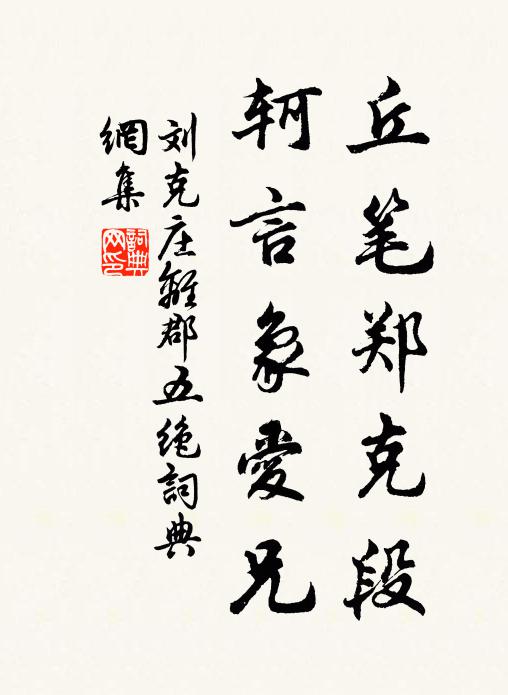 丘笔郑克段
轲言象爱兄
刘克庄离郡五绝词典
网集
词典网印